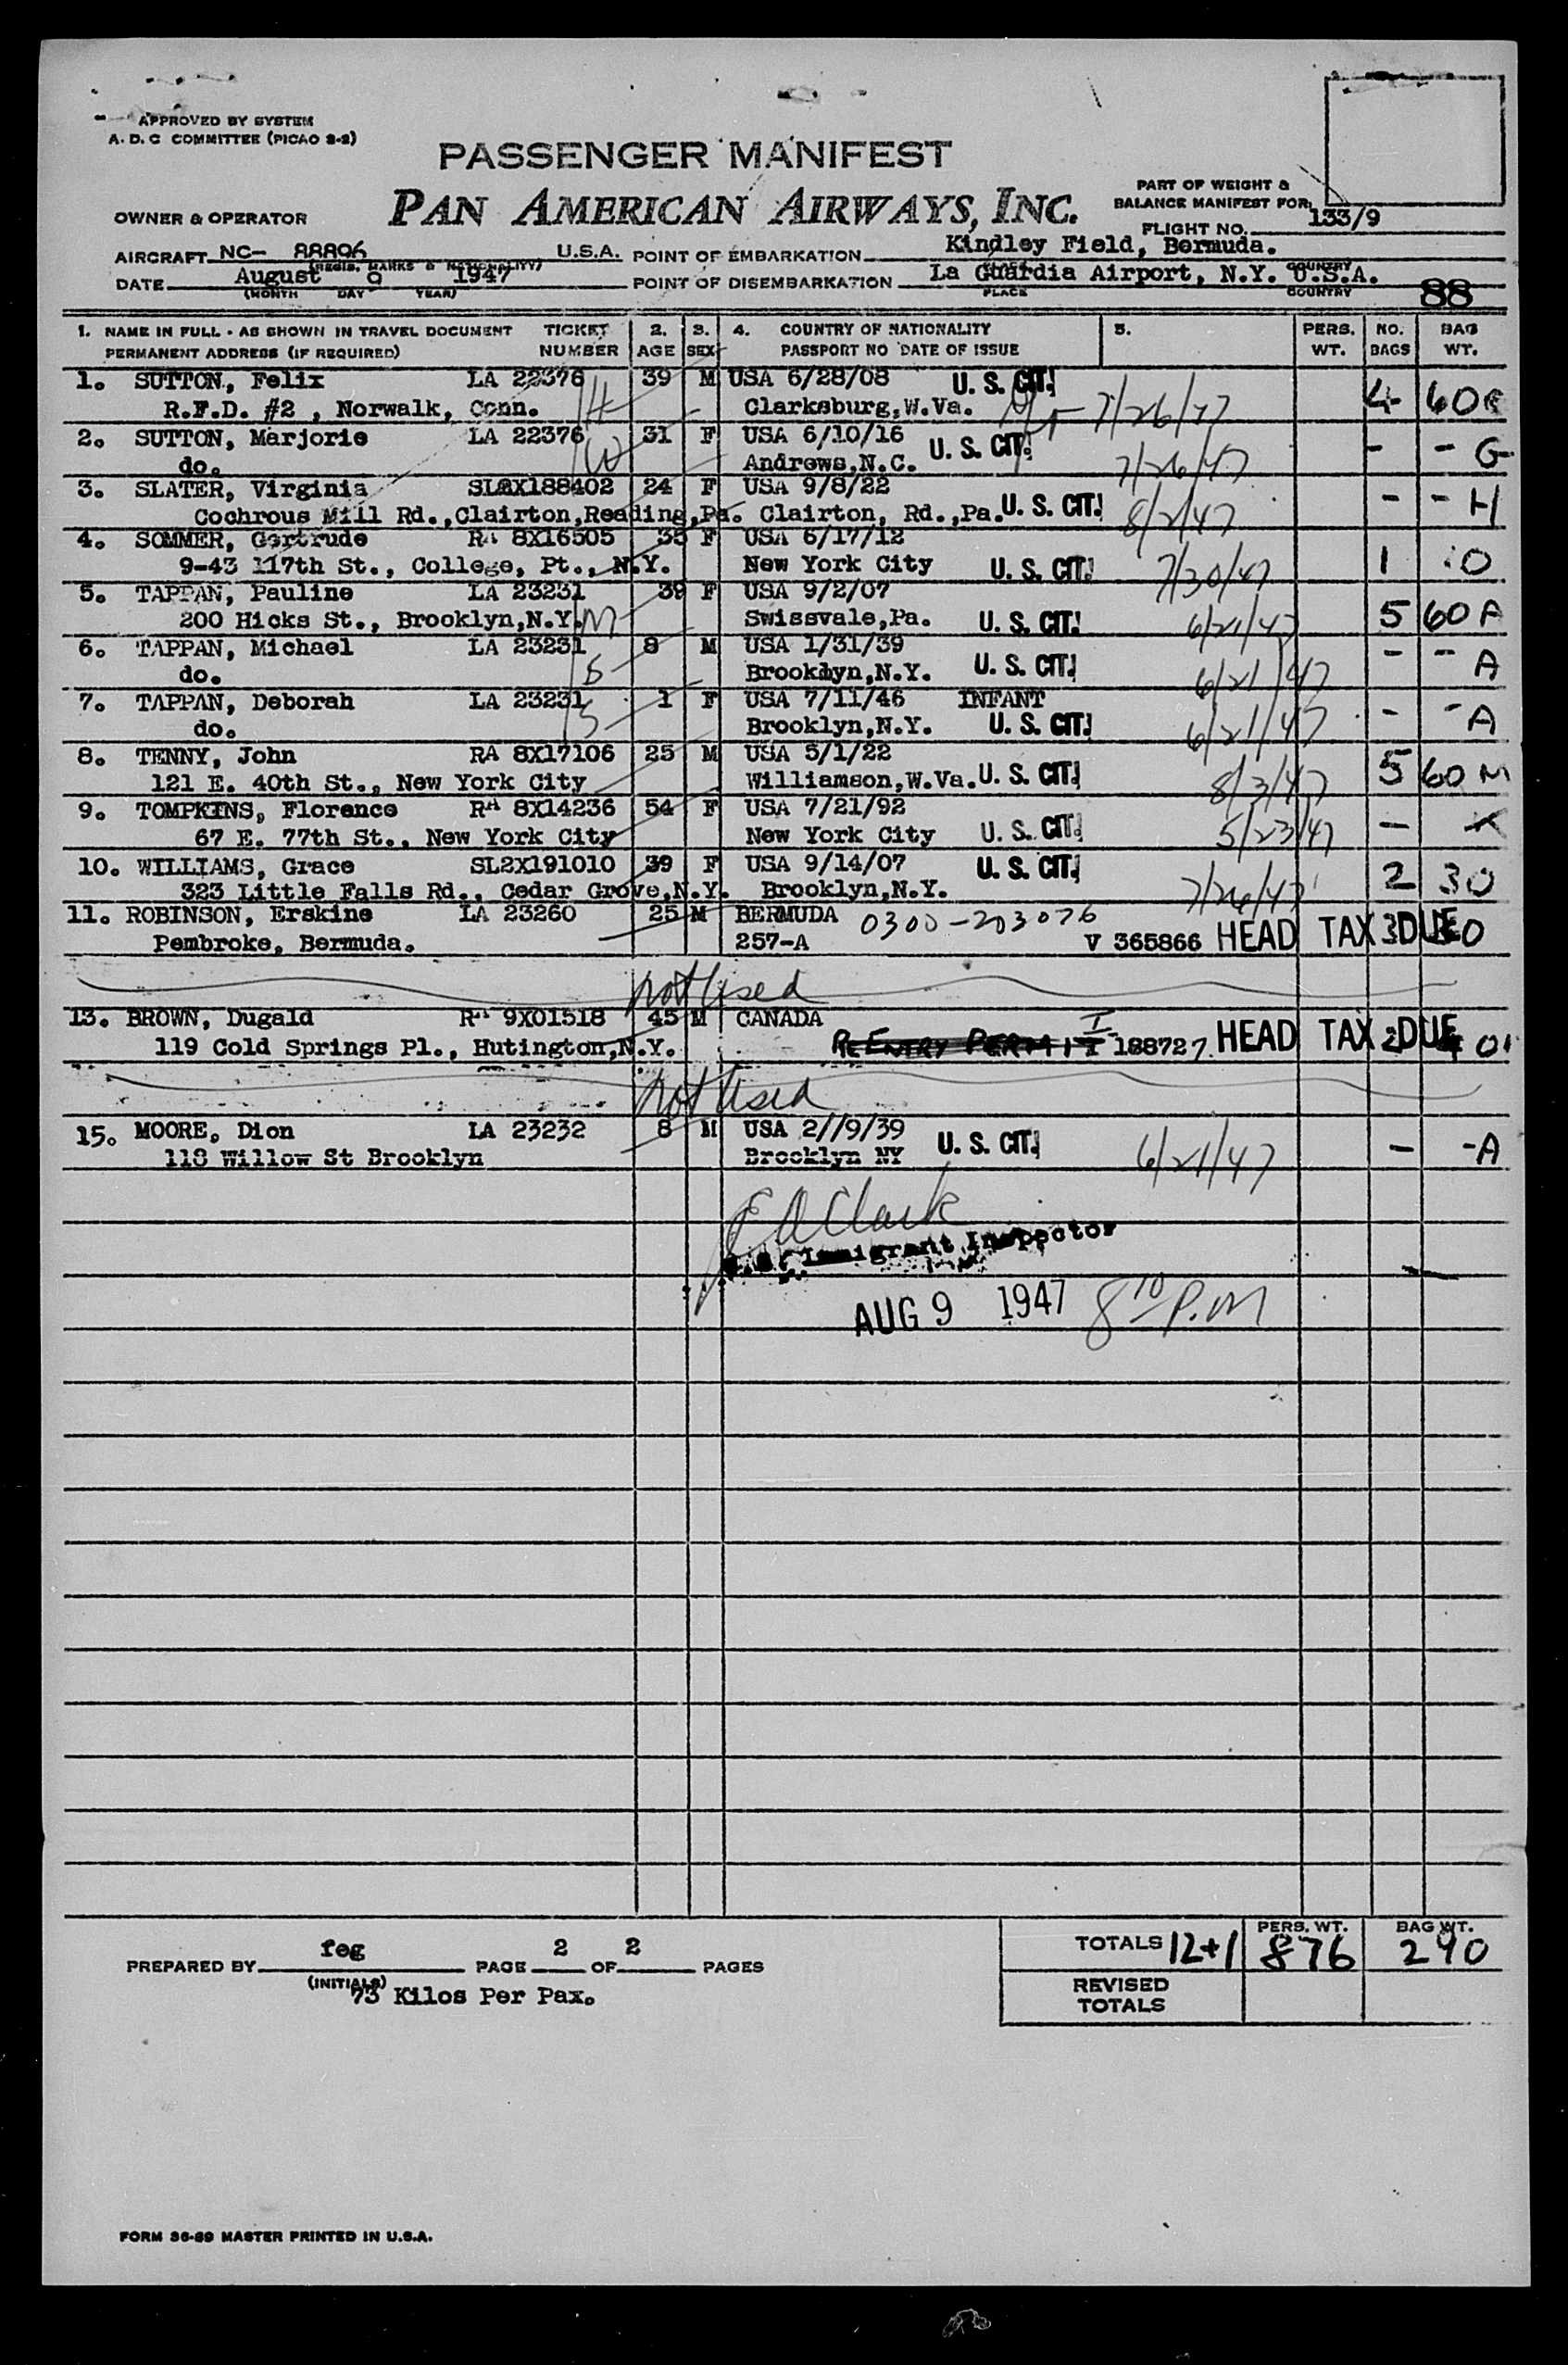 APPROVED BY SYSTEM
A. D. C COMMITTEE (PICAO 2-2)
PASSENGER MANIFEST
PAN AMERICAN AIRWAYS, INC.
OWNER & OPERATOR
PART OF WEIGHT &
BALANCE MANIFEST FOR
FLIGHT NO. 133/9
AIRCRAFT NC- 88806 U.S.A. POINT OF EMBARKATION Kindley Field, Bermuda.
(REGIS. MARKS & NATIONALITY) PLACE COUNTRY
DATE August 8 1947 POINT OF DISEMBARKATION La Guardia Airport, N.Y. U.S.A.
(MONTH DAY YEAR) PLACE COUNTRY
88
1. NAME IN FULL - AS SHOWN IN TRAVEL DOCUMENT TICKET 2. 3. 4. COUNTRY OF NATIONALITY 5. PERS. NO. BAG
PERMANENT ADDRESS (IF REQUIRED) NUMBER AGE SEX PASSPORT NO DATE OF ISSUE WT. BAGS WT.
1. SUTTON, Felix LA 22376 39 M USA 6/28/08 U. S. CIT.
R.F.D. #2 , Norwalk, Conn. H Clarksburg,W.Va. 7/26/47 4 60
2. SUTTON, Marjorie LA 22376 31 F USA 6/10/16 U. S. CIT.
do. W Andrews,N.C. 7/26/47 - - G
3. SLATER, Virginia SL2X188402 24 F USA 9/8/22
Cochrous Mill Rd.,Clairton,Reading,Pa. Clairton, Rd.,Pa. U. S. CIT. 8/2/47 - - H
4. SOMMER, Gertrude RA 8X16505 35 F USA 6/17/12
9-43 117th St., College, Pt., N.Y. New York City U. S. CIT. 7/30/47 1 10
5. TAPPAN, Pauline LA 23231 39 F USA 9/2/07
200 Hicks St., Brooklyn,N.Y. M Swissvale,Pa. U. S. CIT. 6/21/47 5 60 A
6. TAPPAN, Michael LA 23231 8 M USA 1/31/39
do. S Brooklyn,N.Y. U. S. CIT. 6/21/47 - - A
7. TAPPAN, Deborah LA 23231 1 F USA 7/11/46 INFANT
do. S Brooklyn,N.Y. U. S. CIT. 6/21/47 - - A
8. TENNY, John RA 8X17106 25 M USA 5/1/22
121 E. 40th St., New York City Williamson,W.Va. U. S. CIT. 8/3/47 5 60 M
9. TOMPKINS, Florence RA 8X14236 54 F USA 7/21/92
67 E. 77th St., New York City New York City U. S. CIT. 5/23/47 -
10. WILLIAMS, Grace SL2X191010 39 F USA 9/14/07 U. S. CIT.
323 Little Falls Rd., Cedar Grove,N.Y. Brooklyn,N.Y. 7/26/47 2 30
11. ROBINSON, Erskine LA 23260 25 M BERMUDA 0300-203076
Pembroke, Bermuda. 257-A V 365866 HEAD TAX DUE 3
Not Used
13. BROWN, Dugald RA 9X01518 45 M CANADA
119 Cold Springs Pl., Hutington,N.Y. RE ENTRY PERMIT I 188727 HEAD TAX DUE 2
Not Used
15. MOORE, Dion LA 23232 8 M USA 2//9/39 U. S. CIT.
118 Willow St Brooklyn Brooklyn NY 6/21/47 - - A
Clark
Immigrant Inspector
AUG 9 1947 8 10 P.M
TOTALS 12+1 PERS. WT. 876 BAG WT. 290
REVISED
TOTALS
PREPARED BY feg PAGE 2 OF 2 PAGES
(INITIALS)
73 Kilos Per Pax.
FORM 36-89 MASTER PRINTED IN U.S.A.